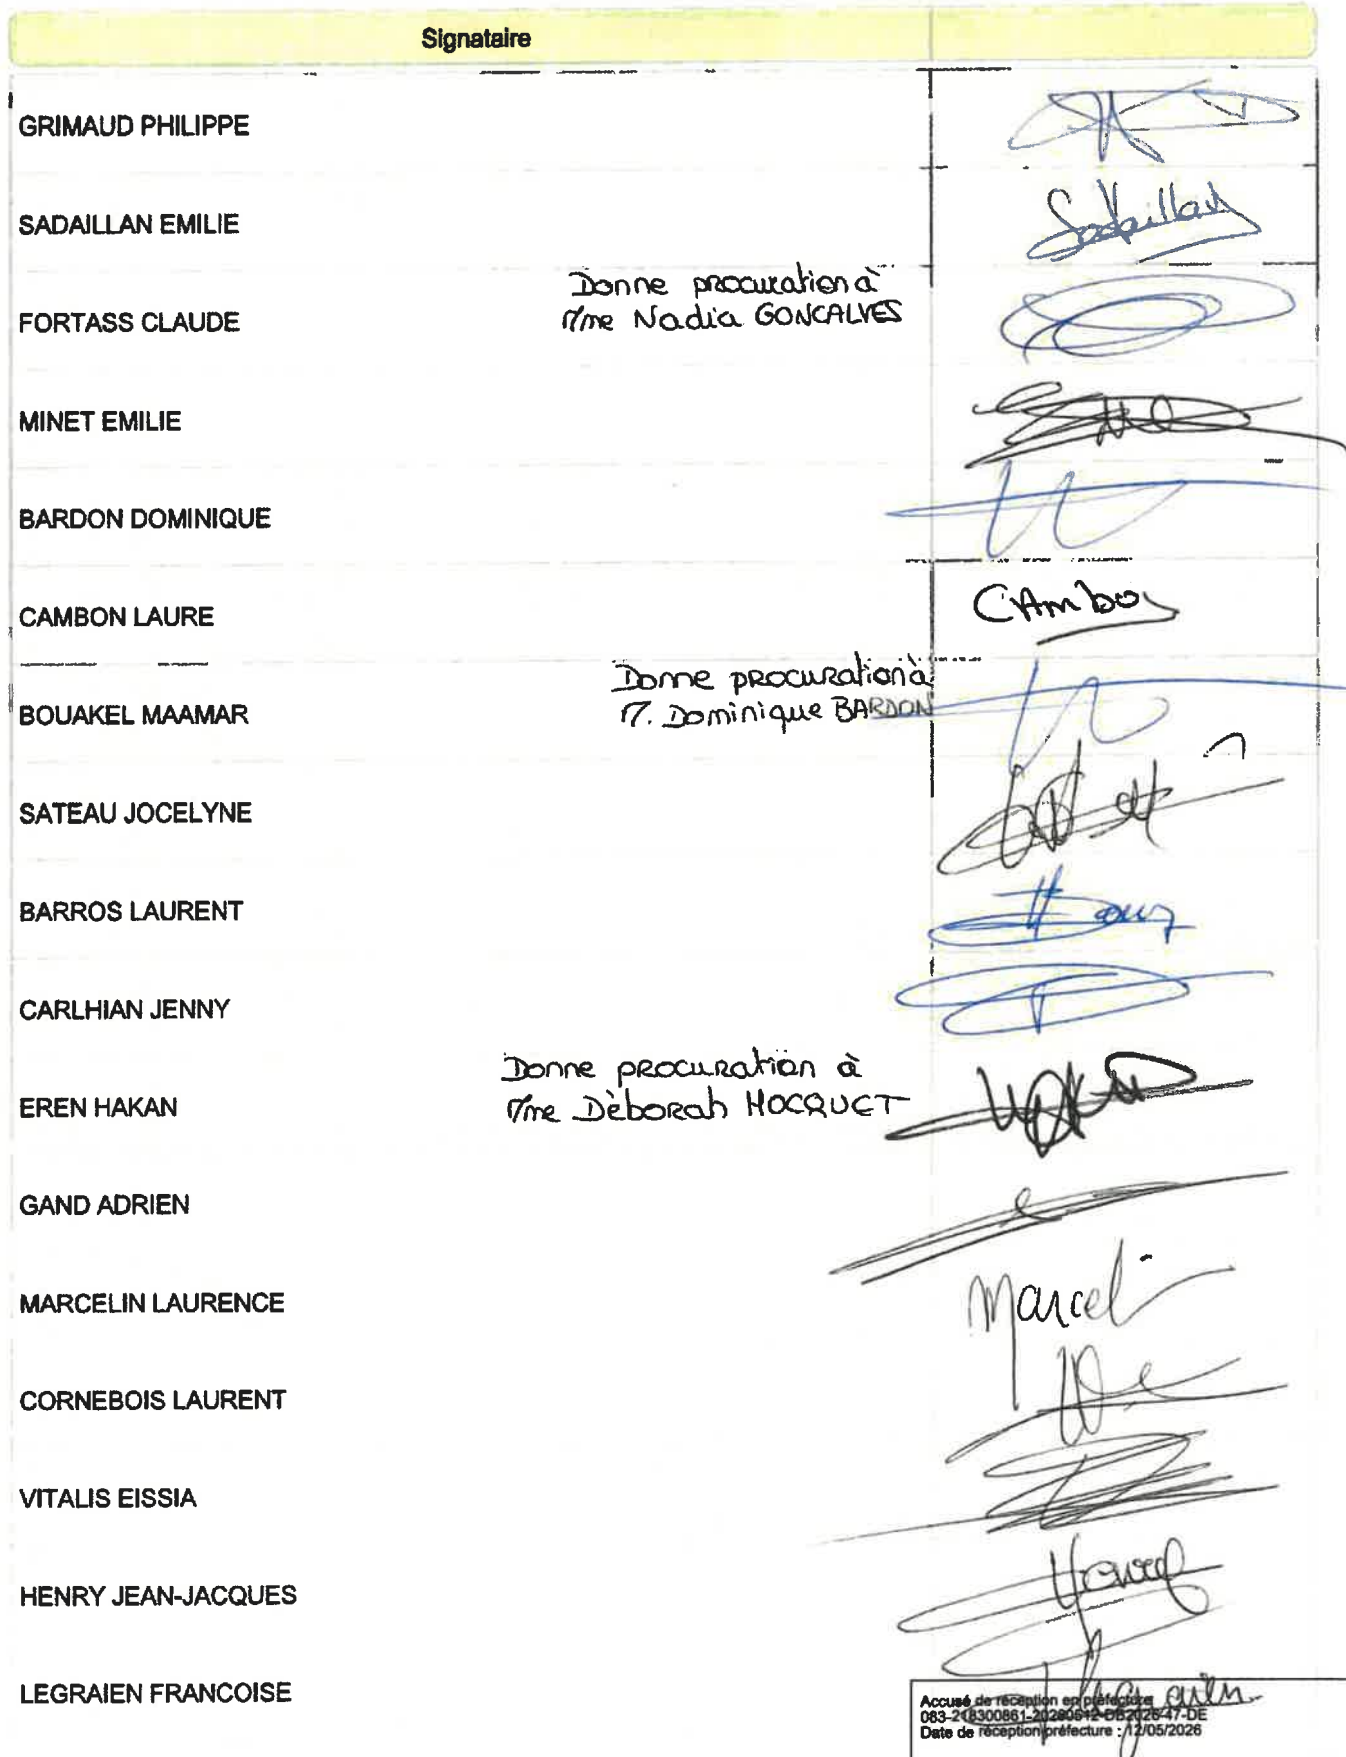 Signataire
GRIMAUD PHILIPPE
SADAILLAN EMILIE
Sadaillan
Donne procuration à
FORTASS CLAUDE
Mme Nadia GONCALVES
MINET EMILIE
BARDON DOMINIQUE
CAMBON LAURE
CAmbon
Donne procuration à
BOUAKEL MAAMAR
M. Dominique BARDON
SATEAU JOCELYNE
BARROS LAURENT
CARLHIAN JENNY
Donne procuration à
EREN HAKAN
Mme Dèborah HOCQUET
GAND ADRIEN
MARCELIN LAURENCE
Marcel
CORNEBOIS LAURENT
VITALIS EISSIA
HENRY JEAN-JACQUES
Henry
LEGRAIEN FRANCOISE
Accusé de réception en préfecture
083-218300861-20260512-DB2026-47-DE
Date de réception préfecture : 12/05/2026